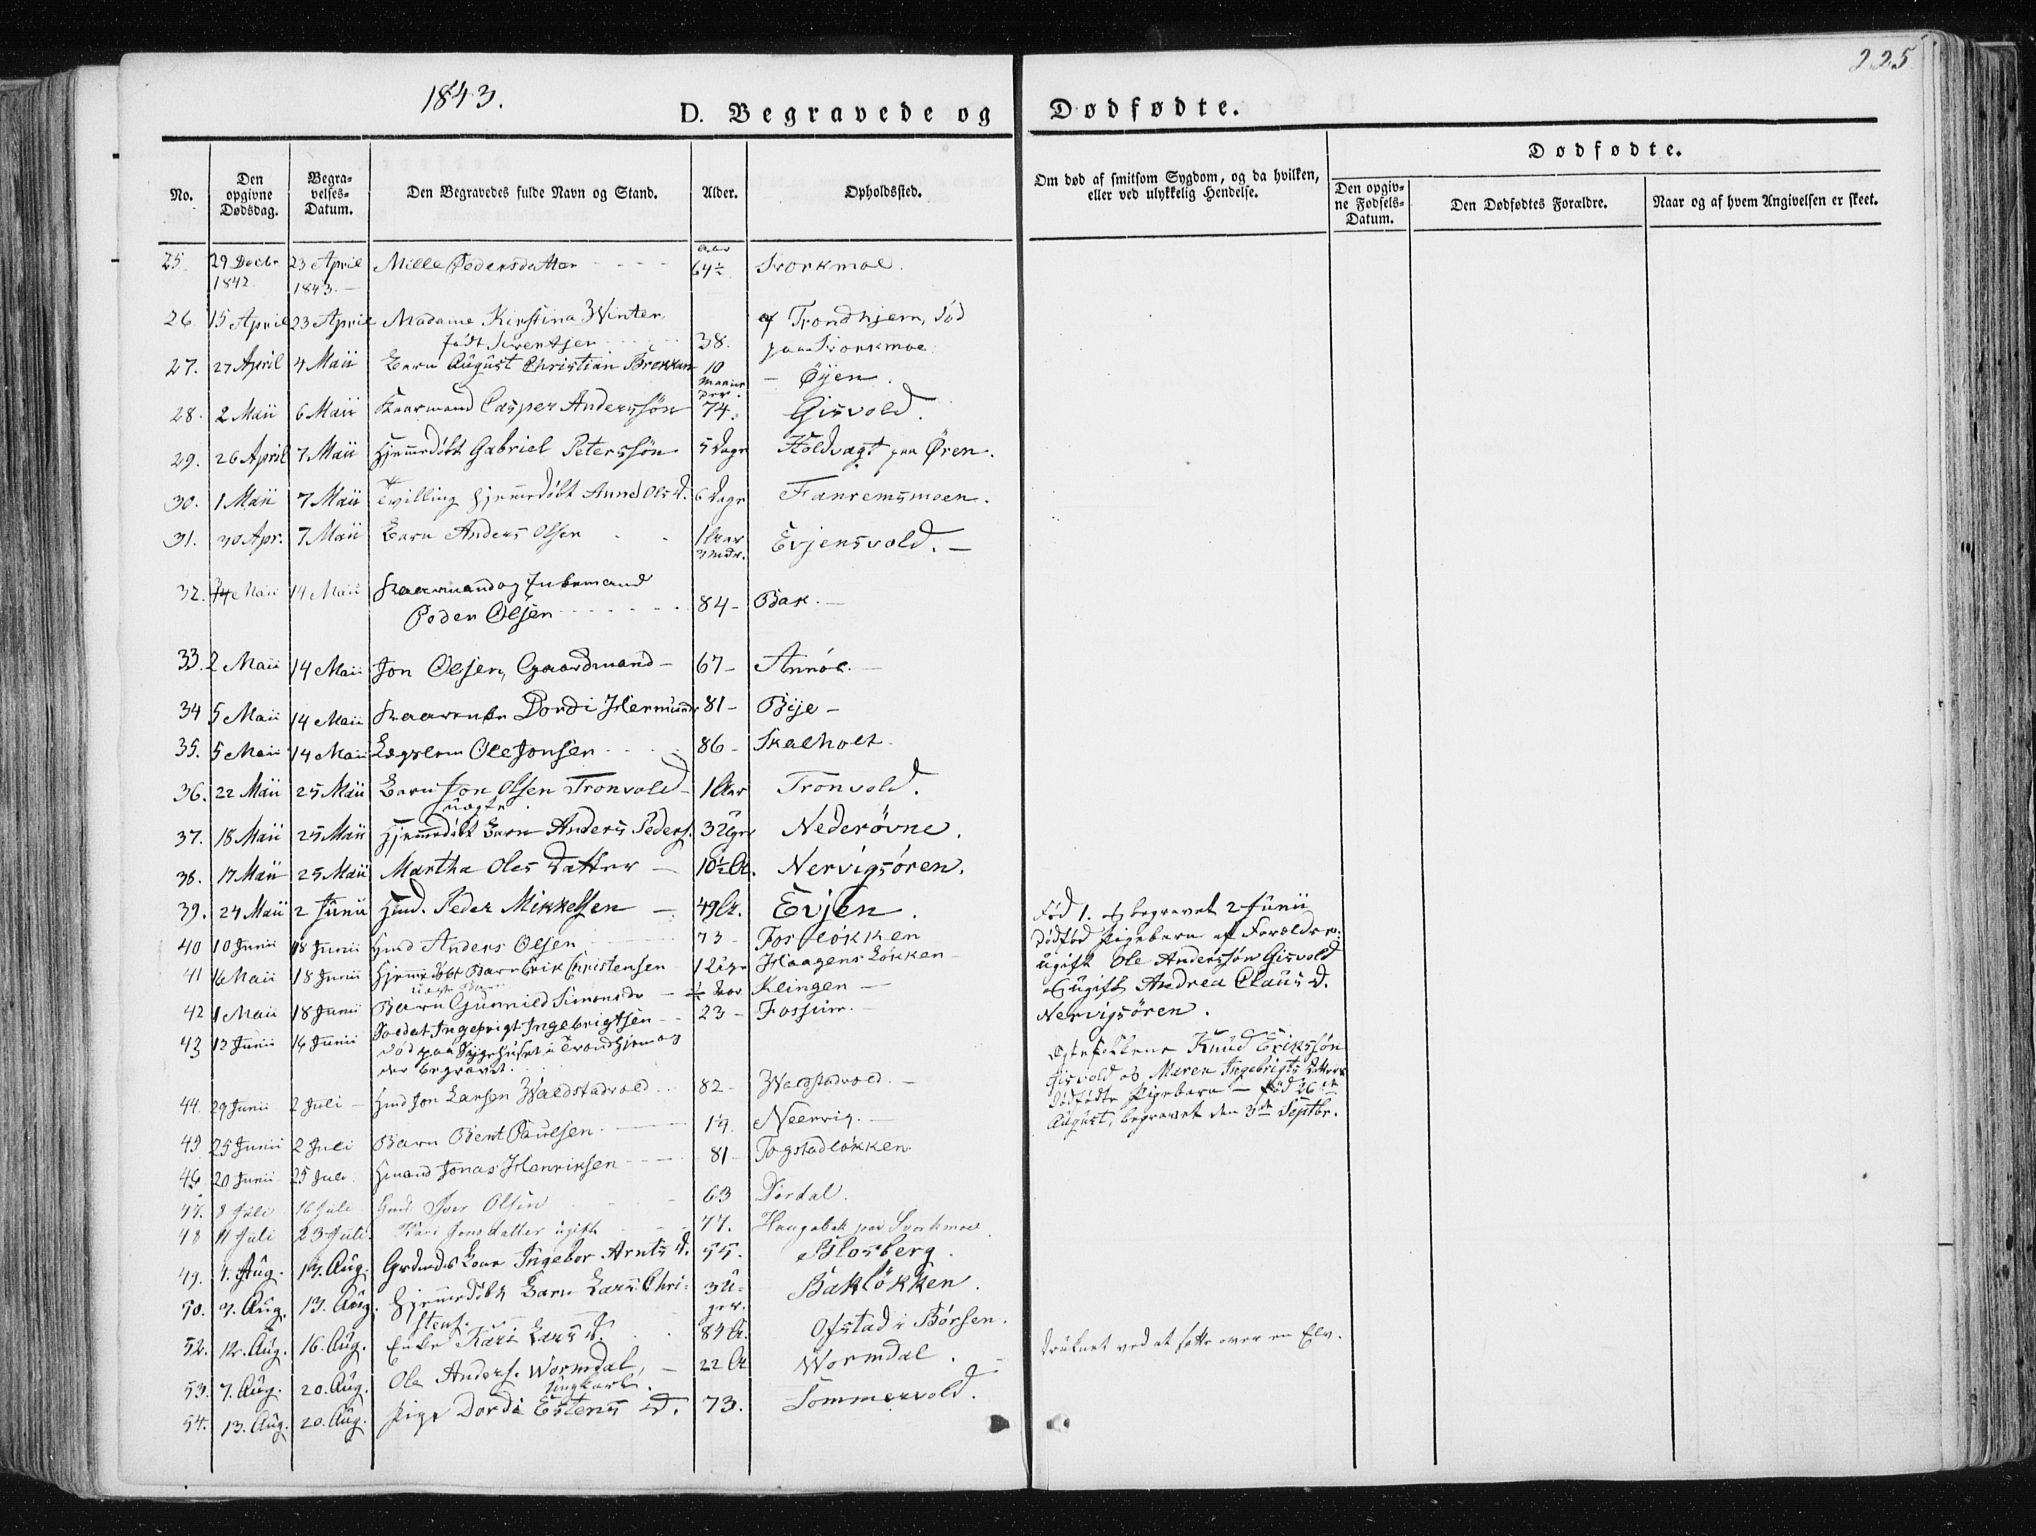 225
1843.
D. Begravede og Dødfødte.
No.
Den opgivne Dødsdag.
Begravelses-Datum.
Den Begravedes fulde Navn og Stand.
Alder.
Opholdssted.
Om død af smitsom Sygdom, og da hvilken, eller ved ulykkelig Hendelse.
Dødfødte.
Den opgivne Fødsels-Datum.
Den Dødfødtes Forældre.
Naar og af hvem Angivelsen er skeet.
25. 29 Decbr 1842. 23 April 1843. Mille Pedersdatter 64½ Svorkmoe.
26 15 April 23 April Madame Kirstina Winter
født 38. af Trondhjem, død paa Svorkmoe
27. 27 April 4 Maii Barn August Christian Brekken 10 Øyen.
28. 2 Maii 6 Maii Kaarmand Casper Anderssøn 74. Gisvold.
29. 26 April 7 Maii Hjemmedøbt Gabriel Peterssøn 5 Dage Holdvagt paa Øren.
30. 1 Maii 7 Maii Tvilling hjemmedøbt Anne Ols D. 6 Dage Fanremsmoen.
31. 30 Apr. 7 Maii Barn Anders Olsen 1 Aar 3 Mdr. Evjensvold.
32. Maii 14 Maii Kaarmand og Enkemand
Peder Olsen 84 Bak.
33. 2 Maii 14 Maii Jon Olsen, Gaardmand 67 Annøe.
34 5 Maii 14 Maii Kaarenke Dordi Hermunds 81 Bye
35. 5 Maii 14 Maii Lægslem Ole Jonsen 86 Skalholt.
36. 22 Maii 25 Maii Barn Jon Olsen Tronvold 1 Aar Tronvold.
uægte
37. 18 Maii 25 Maii Hjemmedøbt Barn Anders Peders. 3 Uger Nederøvne.
38. 17 Maii 25 Maii Martha Oles Datter 10½ A. Nervigsøren.
39. 24 Maii 2 Junii Hmd. Peder Mikkelsen 49 A. Evjen.
40 10 Junii 18 Junii Hmd Anders Olsen 73 Fosløkken
41 16 Maii 18 Junii Hjemmedøbt Barn Erik Christensen 1 Uge Haagensløkken
42 1 Maii 18 Junii Barn Gunnild Simonsdr Aar Klingen
43 13 Junii 16 Junii Soldat Ingebrigt Ingebrigtsen 23 Fossum.
død paa Sygehuset i Trondhjem og
der begravet.
44. 29 Junii 2 Juli Hmd Jon Larsen Waldstadvold 82 Waldstadvold.
45 25 Junii 2 Juli Barn Bent Paulsen 14. Neervig.
46 20 Junii 25 Juli Hmand Jonas Henriksen 81 Togstadløkken
47. 8 Juli 16 Juli Hmd Iver Olsen 63 Dørdal.
48 11 Juli 23 Juli. Kari Jonsdatter ugift 77. Haugabak paa Svorkmoe
49. 4. Aug. 13. Aug. Grdmds Kone Ingebor Arnts D. 55. Blosberg.
50. 7. Aug. 13. Aug. Hjemmedøbt Barn Lars Christens. 3 Uger. Bakløkken.
52. 12. Aug. 16. Aug. Enke Kari Lars D. 84 A. Ofstad i Børsen.
53. 7. Aug. 20. Aug. Ole Anders. Wormdal, Ungkarl. 22 A Wormdal.
54. 13. Aug. 20. Aug. Pige Dordi Estens D. 73. Sommervold.
Fød 1. og begravet 2 Junii
dødfød Pigebarn af Forældre:
ugift Ole Anderssøn Gisvold
& ugift Andrea Claus D.
Nervigsøren.
Ægtefolkene Knud Erikssøn
Gisvold og Maren Ingebrigts Datters
dødfødte Pigebarn – fød 26de
August, begravet den 3de Septbr.
druknet ved at sætte over en Elv.